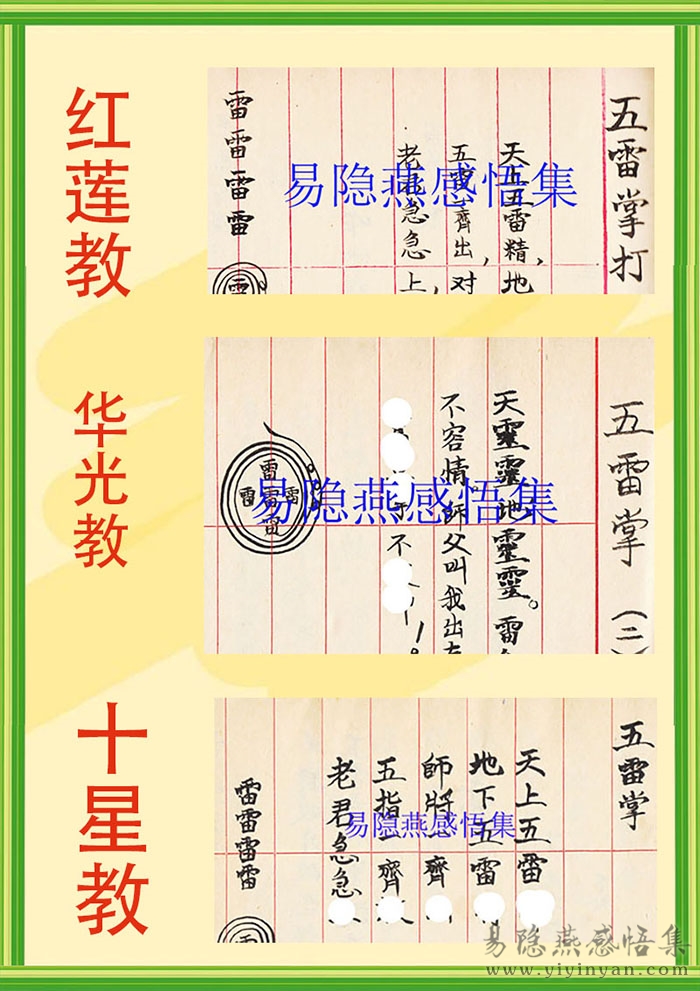 红莲教
五雷掌打
天上五雷精,地
五雷一齊出,对
老君急急上,
雷雷雷雷
雷
易隐燕感悟集
华光教
五雷掌(二)
天靈靈地靈靈。雷
不容情師父叫我出
不
雷
雷雷雷
雷
易隐燕感悟集
十星教
五雷掌
天上五雷
地下五雷
師將一齊
五指一齊
老君急急
雷雷雷雷
雷
易隐燕感悟集
易隐燕感悟集
www.yiyinyan.com